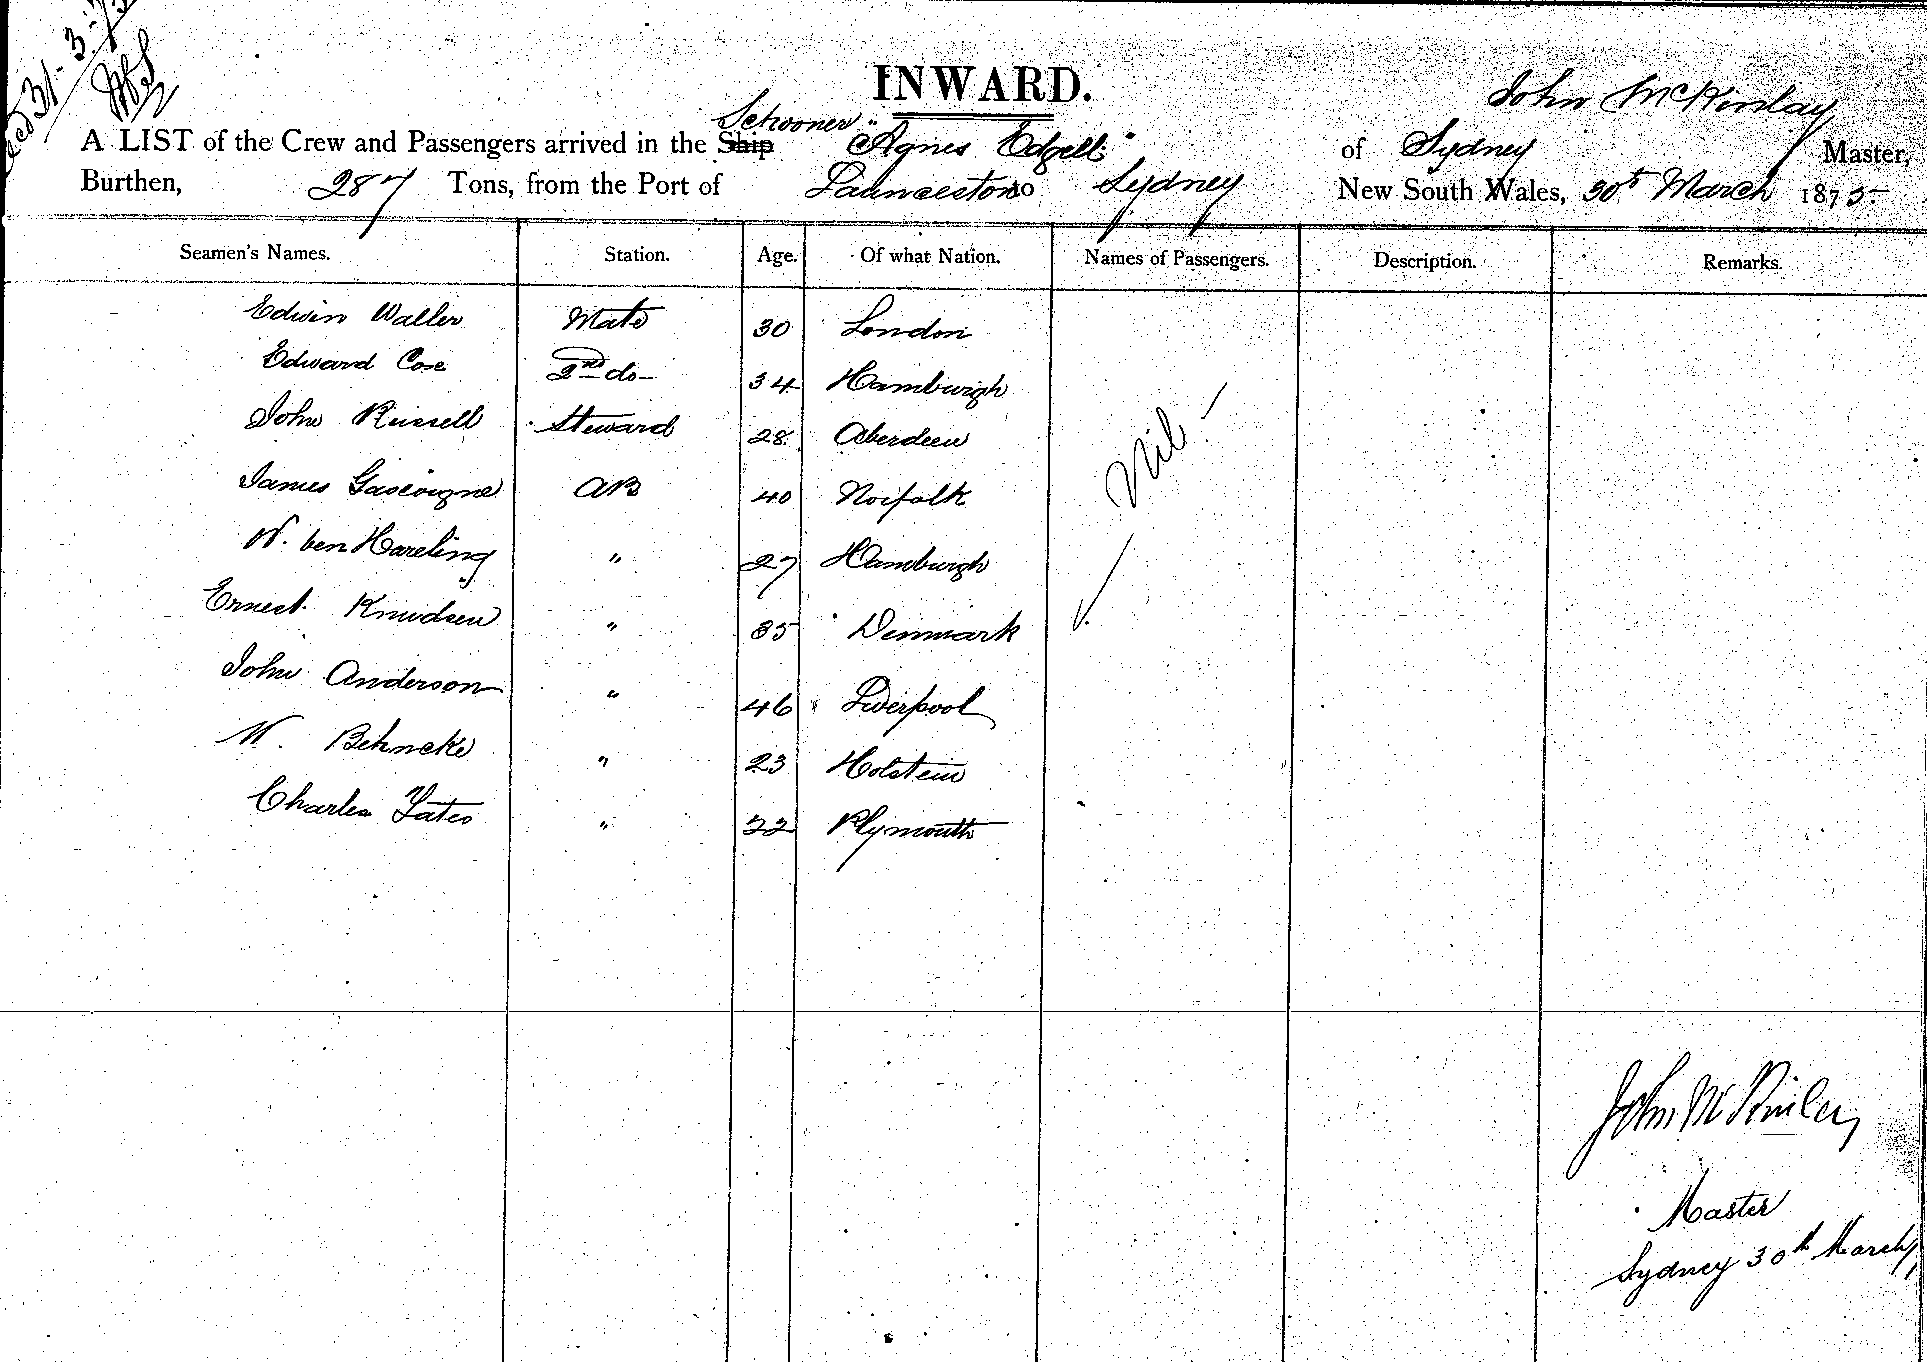 31-3-75
INWARD.
John McKinlay
Schooner
A LIST of the Crew and Passengers arrived in the Ship "Agnes Edgell" of Sydney Master,
Burthen, 287 Tons, from the Port of Launceston to Sydney New South Wales, 30th March 1875
Seamen's Names. Station. Age. Of what Nation. Names of Passengers. Description. Remarks.
Edwin Waller Mate 30 London
Edward Coxe 2nd do- 34 Hamburgh
John Russell Steward 28 Aberdeen
James Gascoigne AB 40 Norfolk
Nil -
W. ben Hareling " 27 Hamburgh
Ernest Knudsen " 35 Denmark
John Anderson " 46 Liverpool
W. Behncke " 23 Holstein
Charles Yates " 22 Plymouth
John McKinlay
Master
Sydney 30th March